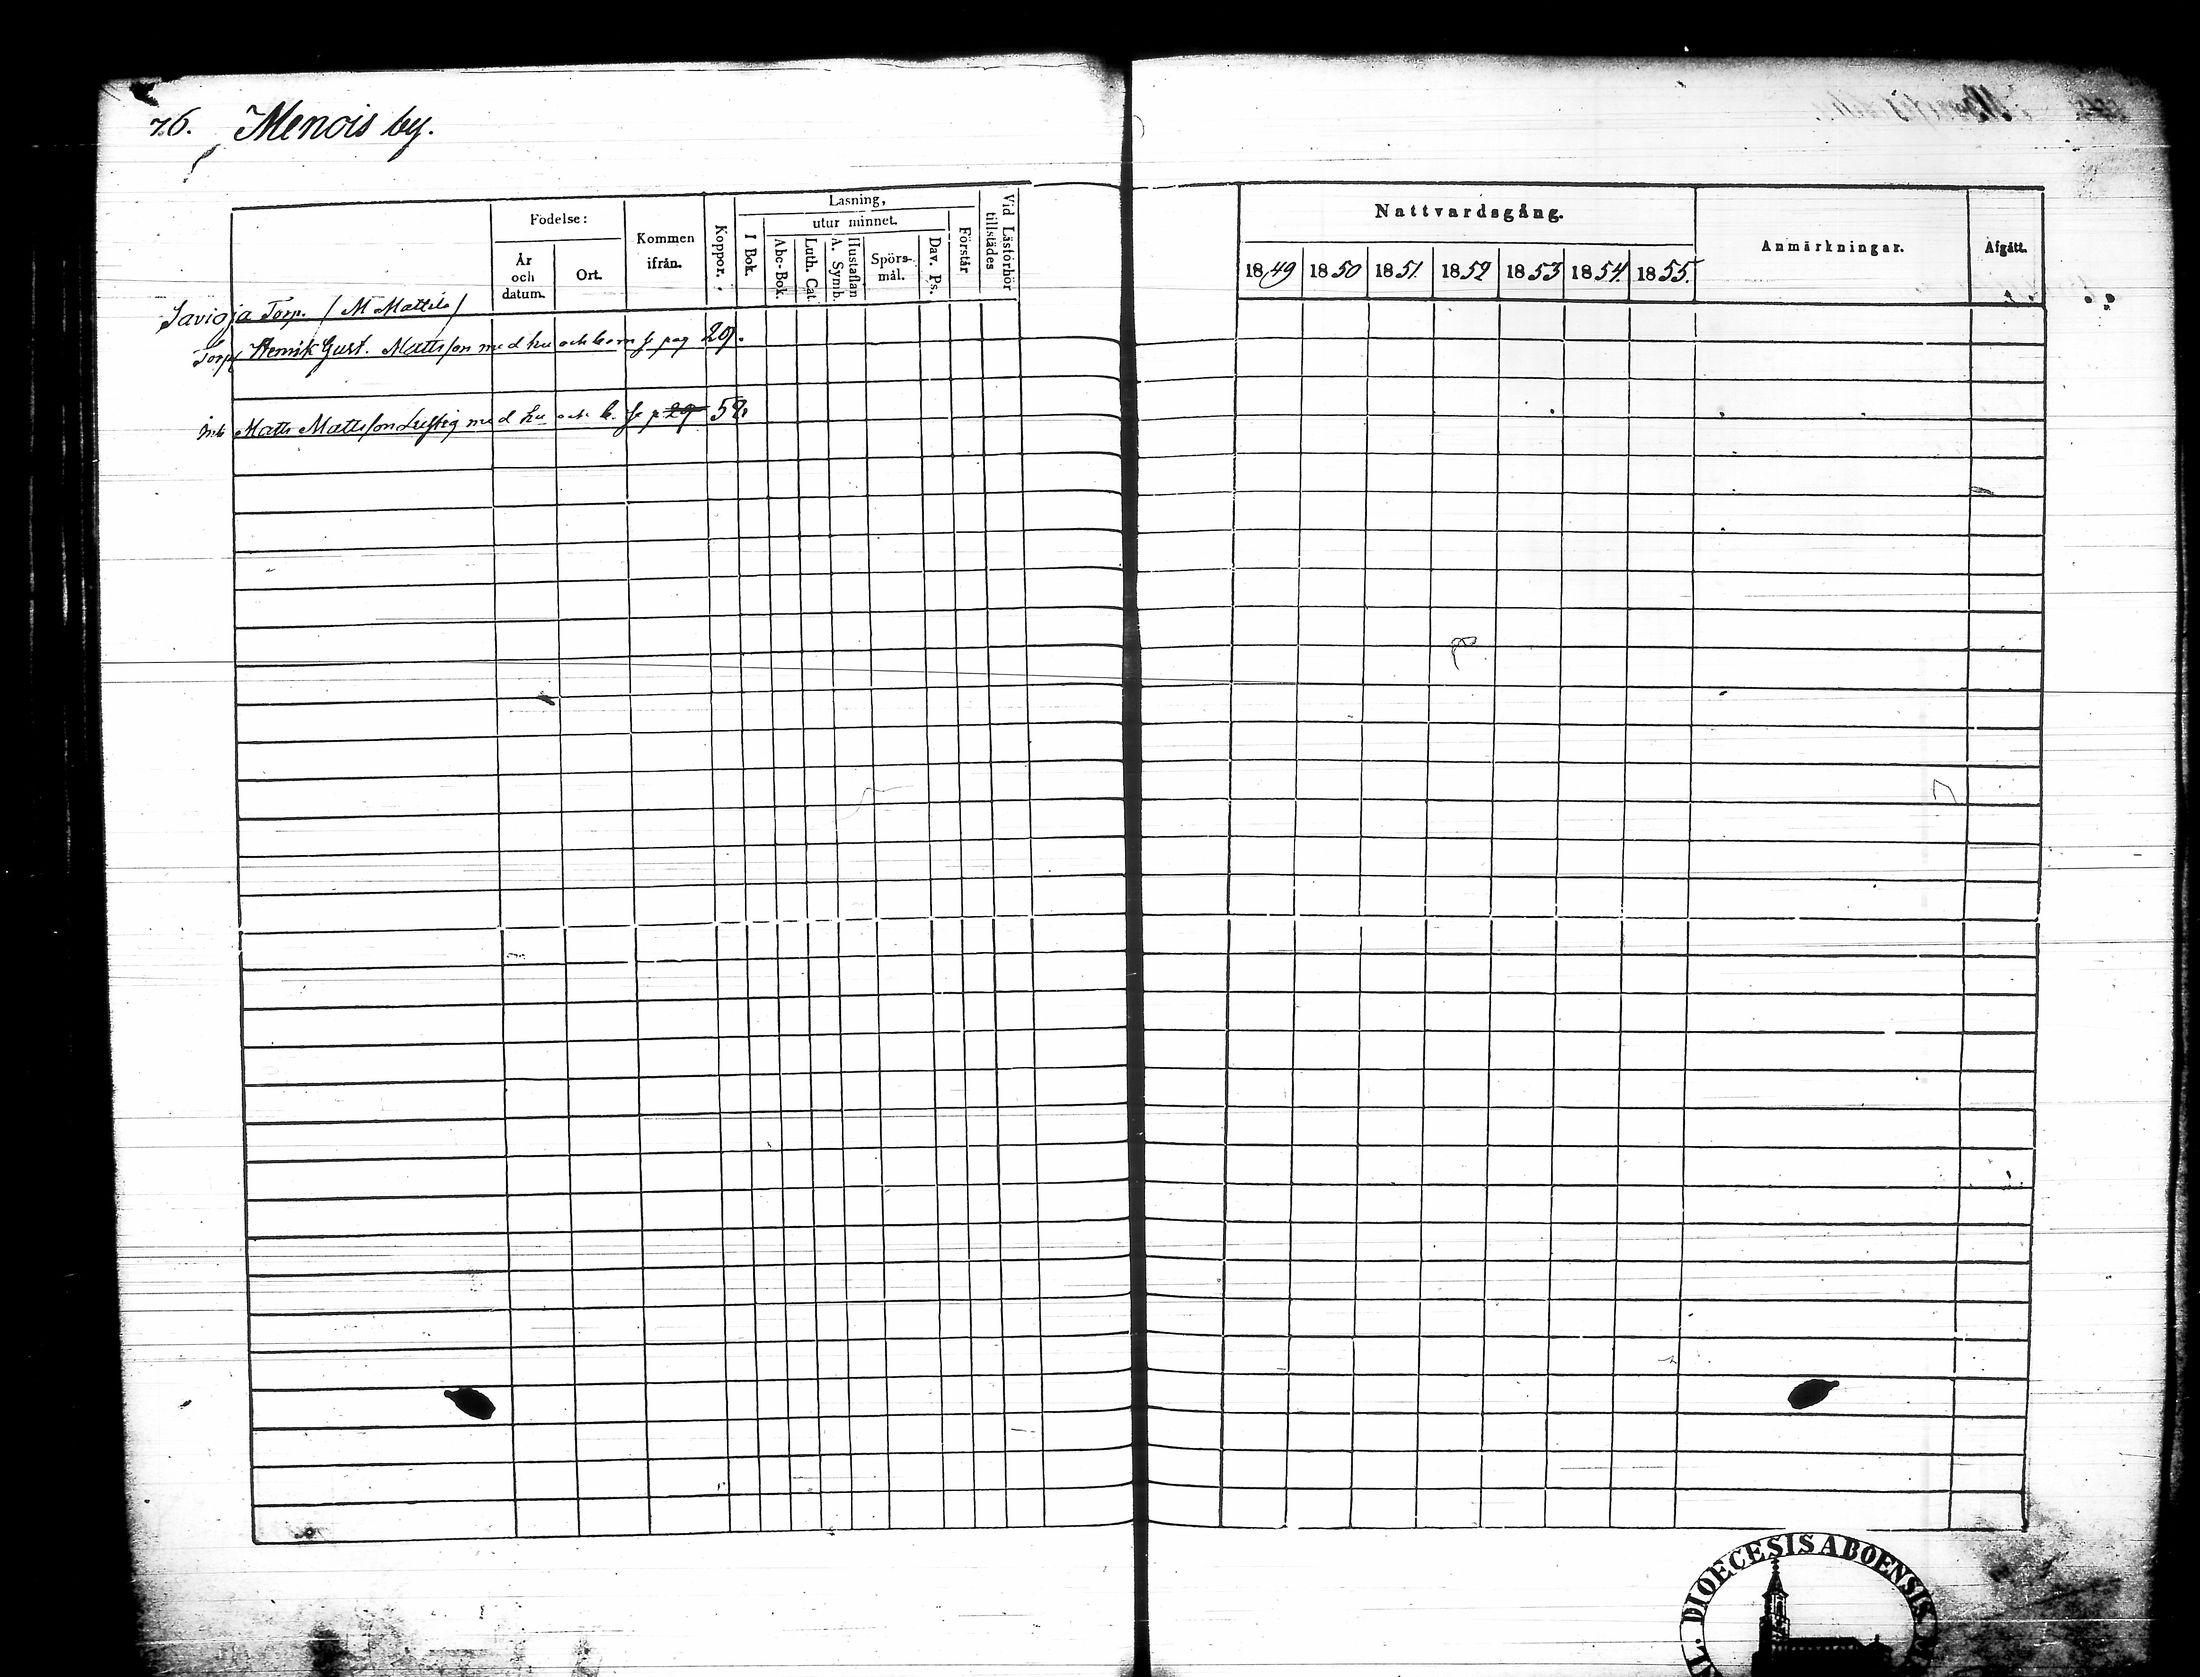 76. Menois by.
Födelse:
År och datum.
Ort.
Kommen ifrån.
Koppor.
Läsning,
I Bok.
utur minnet.
Abc-Bok.
Luth. Cat.
A. Symb.
Hustaflan
Spörs-
mål.
Dav. Ps.
Förstår
Vid Läsförhör
tillstädes
Nattvardsgång.
1849 1850 1851. 1852 1853 1854. 1855.
Anmärkningar.
Afgått.
Savioja Torp. (M Mattila)
Torp Henrik Gust. Mattsson med hu och barn se pag 29.
Matts Mattsson Lustig med hu och b. se p 29 58.
DIOECESIS ABOENSIS